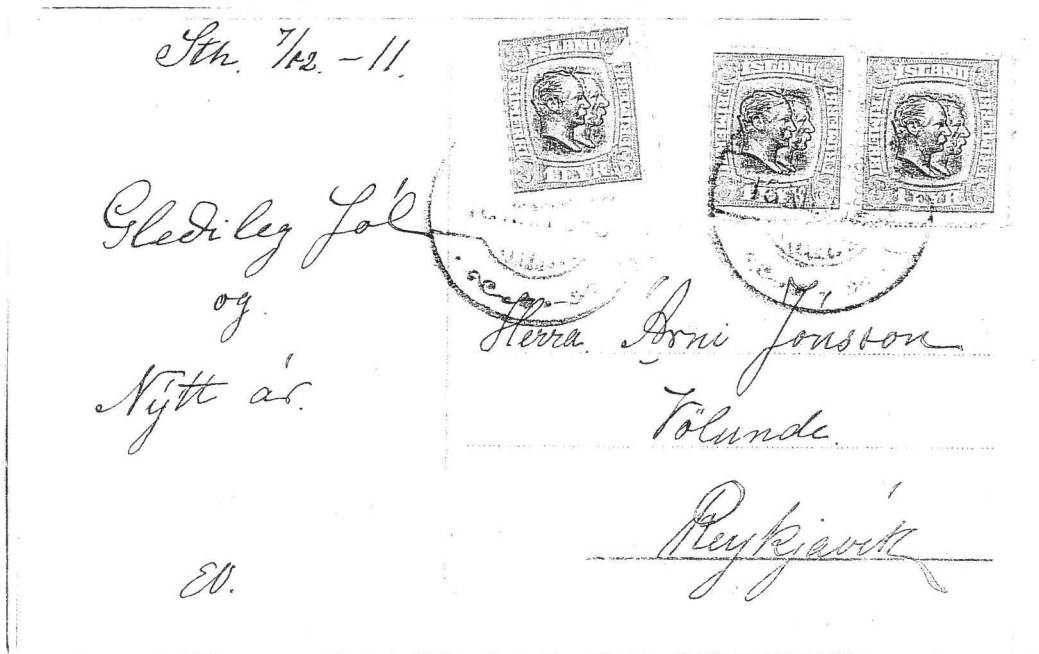 Sth. 7/12. - 11.
Gleðileg Jól
og
Nýtt ár.
EV.
ÍSLAND
BRÉFSPJALD
ÍSLAND
ÍSLAND
Herra. Árni Jónsson
Völunde.
Reykjavík